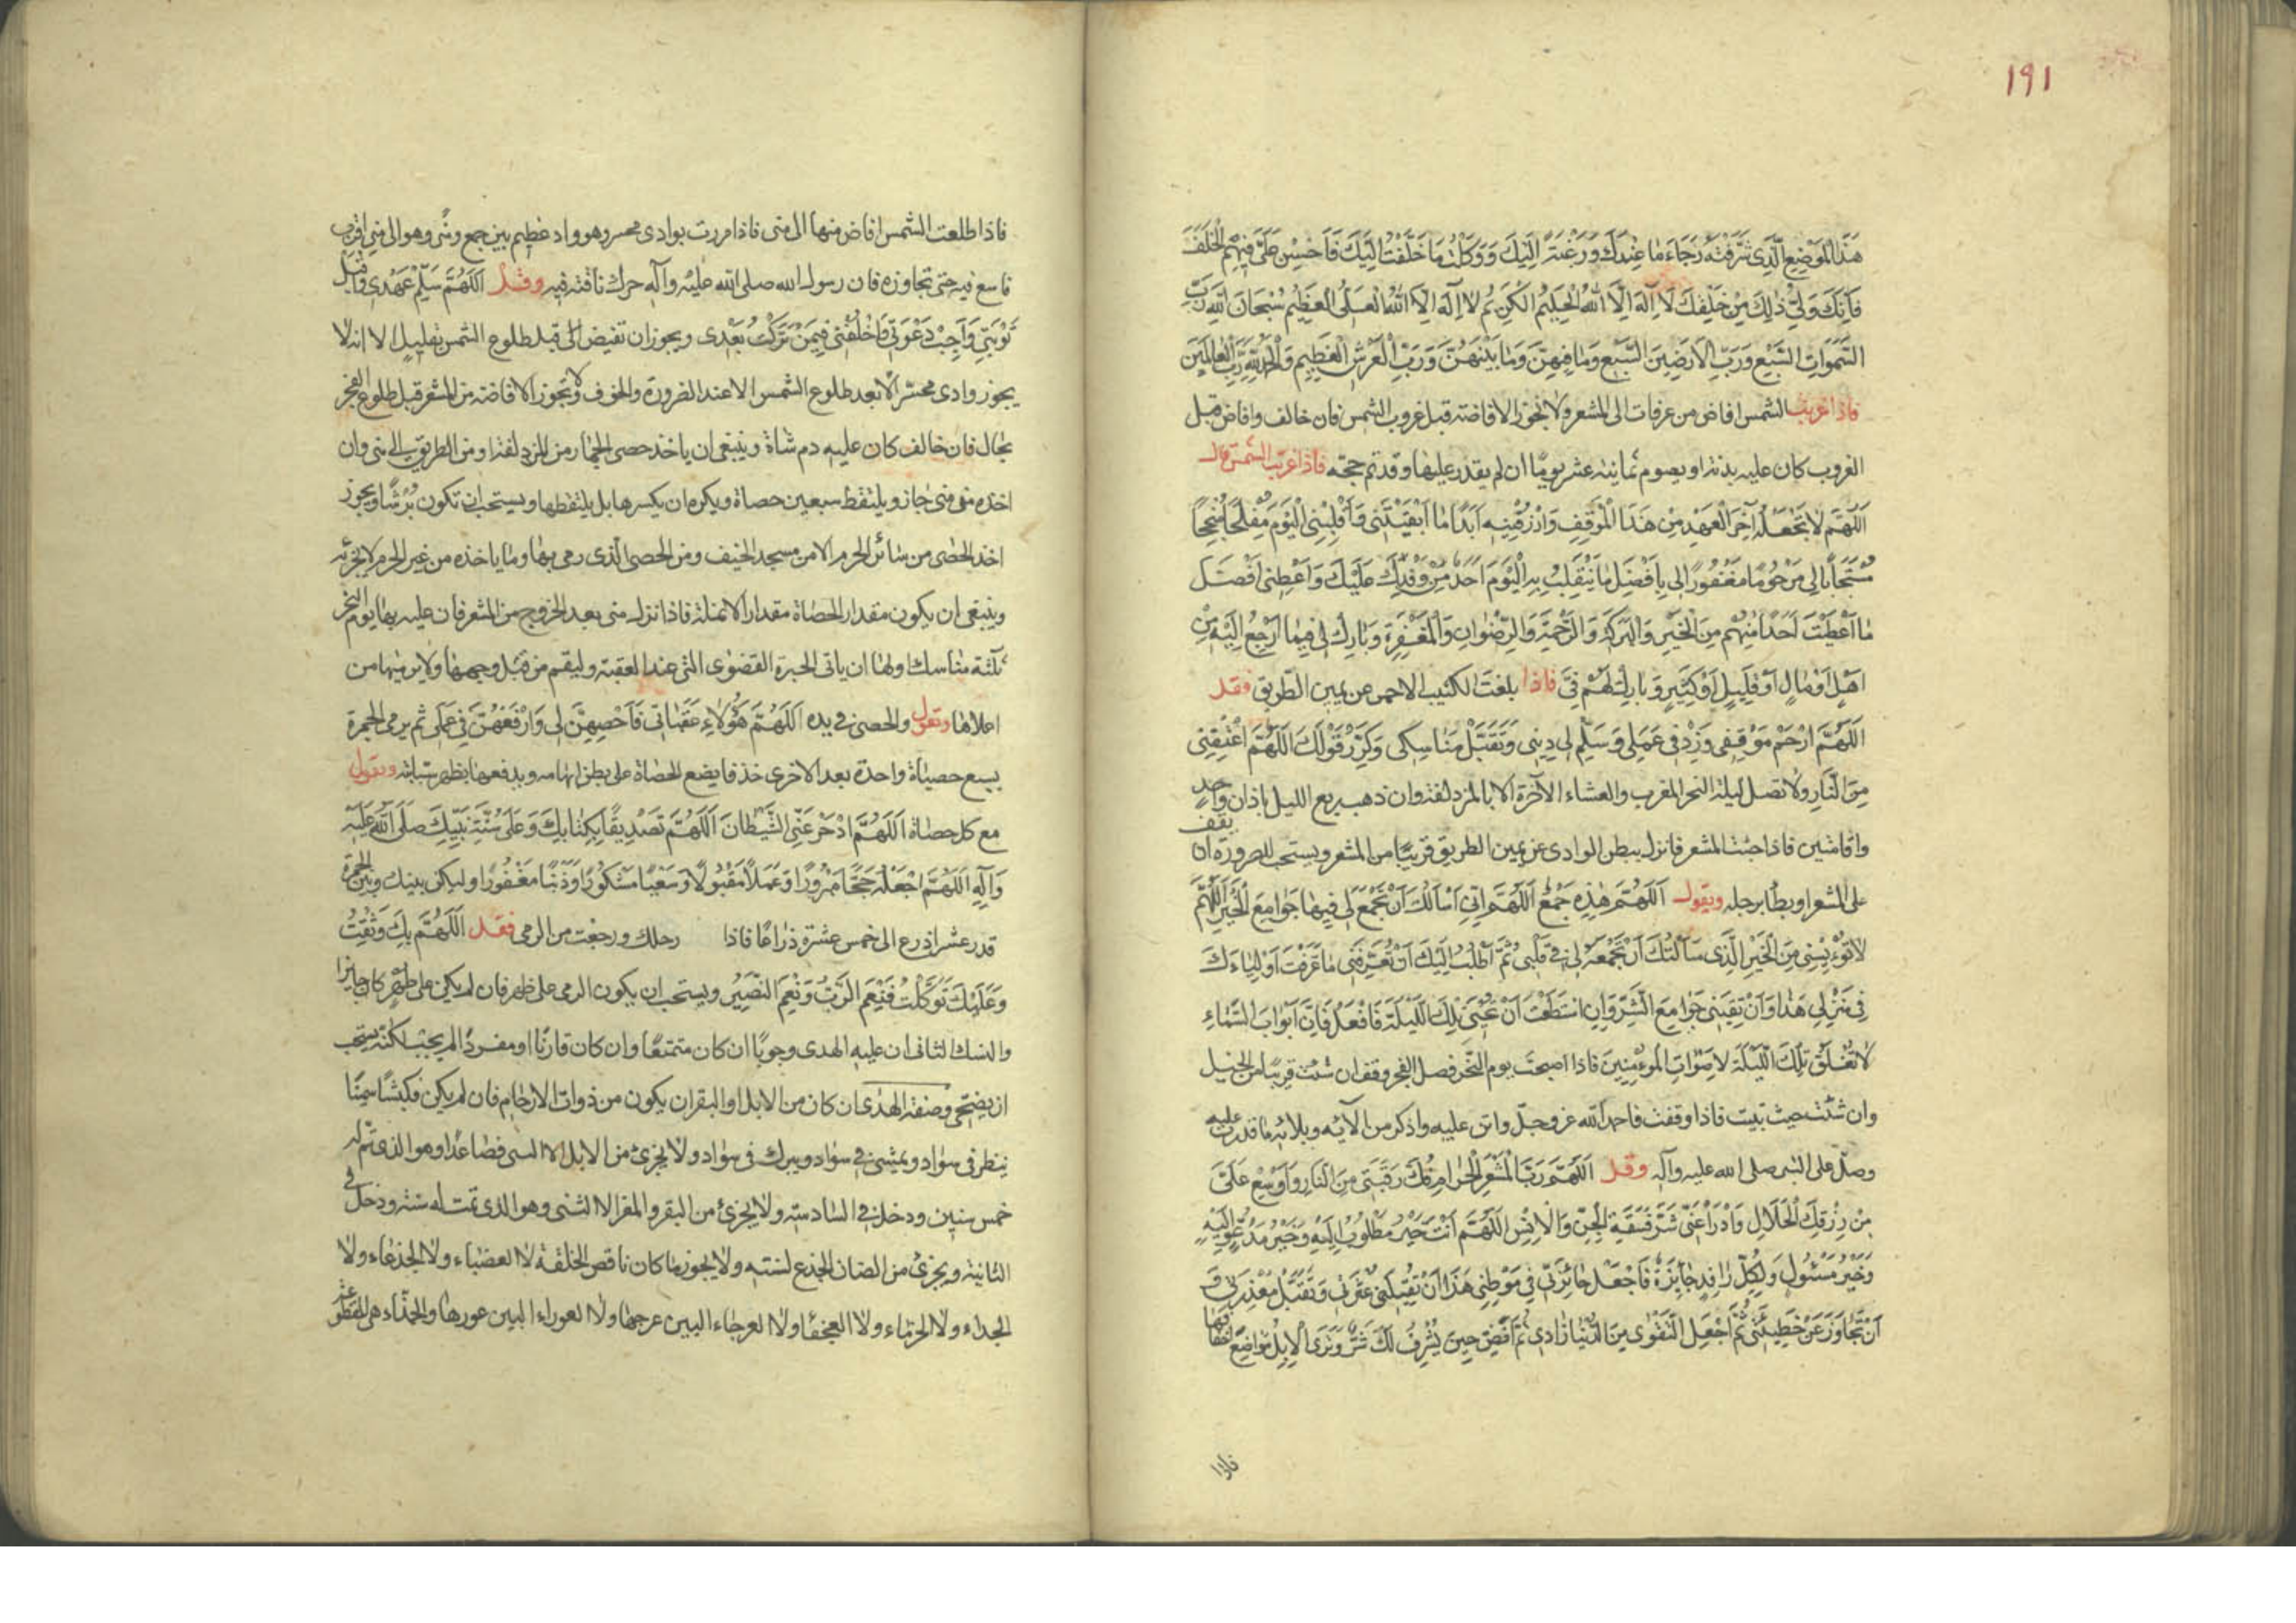 ١٩١
هَذَا الْمَوْضِعِ الَّذِى شَرَّفْتَهُ رَجَاءَ مَا عِنْدَكَ وَرَغْبَةً اِلَيْكَ وَوَكَلْتُ مَا خَلَّفْتُ اِلَيْكَ فَاَحْسِنْ عَلَىَّ فِيهِمُ الْخَلَفَ
فَاِنَّكَ وَلِىُّ ذٰلِكَ مِنْ خَلْقِكَ لَا اِلٰهَ اِلَّا اللهُ الْحَلِيمُ الْكَرِيمُ لَا اِلٰهَ اِلَّا اللهُ الْعَلِىُّ الْعَظِيمُ سُبْحَانَ اللهِ رَبِّ
السَّمٰوَاتِ السَّبْعِ وَرَبِّ الْاَرَضِينَ السَّبْعِ وَمَا فِيهِنَّ وَمَا بَيْنَهُنَّ وَرَبِّ الْعَرْشِ الْعَظِيمِ وَالْحَمْدُ لِلّٰهِ رَبِّ الْعَالَمِينَ
فاذا غربت الشمس افاض من عرفات الى المشعر ولا تجوز الافاضة قبل غروب الشمس فان خالف وافاض قبل
الغروب كان عليه بدنة او يصوم ثمانية عشر يومًا ان لم يقدر عليها وقد تم حجه فاذا غربت الشمس قال
اَللّٰهُمَّ لَا تَجْعَلْهُ آخِرَ الْعَهْدِ مِنْ هَذَا الْمَوْقِفِ وَارْزُقْنِيهِ اَبَدًا مَا اَبْقَيْتَنِى وَاَقْلِبْنِى الْيَوْمَ مُفْلِحًا مُنْجِحًا
مُسْتَجَابًا لِى مَرْحُومًا مَغْفُورًا لِى بِاَفْضَلِ مَا يَنْقَلِبُ بِهِ الْيَوْمَ اَحَدٌ مِنْ وَفْدِكَ عَلَيْكَ وَاَعْطِنِى اَفْضَلَ
مَا اَعْطَيْتَ اَحَدًا مِنْهُمْ مِنَ الْخَيْرِ وَالْبَرَكَةِ وَالرَّحْمَةِ وَالرِّضْوَانِ وَالْمَغْفِرَةِ وَبَارِكْ لِى فِيمَا اَرْجِعُ اِلَيْهِ مِنْ
اَهْلٍ اَوْ مَالٍ اَوْ قَلِيلٍ اَوْ كَثِيرٍ وَبَارِكْ لَهُمْ فِىَّ فاذا بلغت الكثيب الاحمر عن يمين الطريق فقل
اَللّٰهُمَّ ارْحَمْ مَوْقِفِى وَزِدْ فِى عَمَلِى وَسَلِّمْ لِى دِينِى وَتَقَبَّلْ مَنَاسِكِى وَكَرِّرْ قَوْلَكَ اَللّٰهُمَّ اعْتِقْنِى
مِنَ النَّارِ ولا تصل ليلة النحر المغرب والعشاء الآخرة الا بالمزدلفة وان ذهب ربع الليل باذان واحد
واقامتين فاذا جئت المشعر فانزل ببطن الوادى عن يمين الطريق قريبًا من المشعر ويستحب للصرورة ان يقف
على المشعر او يطأ برجله ويقول اَللّٰهُمَّ هٰذِهِ جَمْعٌ اَللّٰهُمَّ اِنِّى اَسْاَلُكَ اَنْ تَجْمَعَ لِى فِيهَا جَوَامِعَ الْخَيْرِ اَللّٰهُمَّ
لَا تُؤْيِسْنِى مِنَ الْخَيْرِ الَّذِى سَاَلْتُكَ اَنْ تَجْمَعَهُ لِى فِى قَلْبِى ثُمَّ اَطْلُبُ اِلَيْكَ اَنْ تُعَرِّفَنِى مَا عَرَّفْتَ اَوْلِيَاءَكَ
فِى مَنْزِلِى هٰذَا وَاَنْ تَقِيَنِى جَوَامِعَ الشَّرِّ وَاِنِ اسْتَطَعْتَ اَنْ تُحْيِىَ تِلْكَ اللَّيْلَةَ فَافْعَلْ فَاِنَّ اَبْوَابَ السَّمَاءِ
لَا تُغْلَقُ تِلْكَ اللَّيْلَةَ لِاَصْوَاتِ الْمُؤْمِنِينَ فاذا اصبحت يوم النحر فصل الفجر وقف ان شئت قريبًا من الجبل
وان شئت حيث تبيت فاذا وقفت فاحمد الله عز وجلّ واثن عليه واذكر من آلائه وبلائه ما قدرت عليه
وصلّ على النبى صلى الله عليه وآله وقل اَللّٰهُمَّ رَبَّ الْمَشْعَرِ الْحَرَامِ فُكَّ رَقَبَتِى مِنَ النَّارِ وَاَوْسِعْ عَلَىَّ
مِنْ رِزْقِكَ الْحَلَالِ وَادْرَأْ عَنِّى شَرَّ فَسَقَةِ الْجِنِّ وَالْاِنْسِ اَللّٰهُمَّ اَنْتَ خَيْرُ مَطْلُوبٍ اِلَيْهِ وَخَيْرُ مَدْعُوٍّ اِلَيْهِ
وَخَيْرُ مَسْئُولٍ وَلِكُلِّ وَافِدٍ جَائِزَةٌ فَاجْعَلْ جَائِزَتِى فِى مَوْطِنِى هَذَا اَنْ تُقِيلَنِى عَثْرَتِى وَتَقْبَلَ مَعْذِرَتِى وَ
اَنْ تَجَاوَزَ عَنْ خَطِيئَتِى ثُمَّ اجْعَلِ التَّقْوٰى مِنَ الدُّنْيَا زَادِى ثُمَّ اَفِضْ حِينَ يُشْرِفُ لَكَ ثَبِيرٌ وَتَرَى الْاِبِلُ مَوَاضِعَ اَخْفَافِهَا
فاذا
فاذا طلعت الشمس افاض منها الى منى فاذا مررت بوادى محسر وهو واد عظيم بين جمع ومنى وهو الى منى اقرب
فاسع فيه حتى تجاوزه فان رسول الله صلى الله عليه وآله حرك ناقته فيه وقل اَللّٰهُمَّ سَلِّمْ عَهْدِى وَاقْبَلْ
تَوْبَتِى وَاَجِبْ دَعْوَتِى وَاخْلُفْنِى فِيمَنْ تَرَكْتُ بَعْدِى ويجوز ان تفيض الى قبل طلوع الشمس بقليل الا انه لا
يجوز وادى محسّر الا بعد طلوع الشمس الا عند الضرورة والخوف ولا تجوز الافاضة من المشعر قبل طلوع الفجر
بحال فان خالف كان عليه دم شاة وينبغى ان ياخذ حصى الجمار من المزدلفة او من الطريق الى منى وان
اخذه من منى جاز ويلتقط سبعين حصاة ويكره ان يكسرها بل يلتقطها ويستحب ان تكون بُرْشًا ويجوز
اخذ الحصى من سائر الحرم الا من مسجد الخيف ومن الحصى الذى رمى بها وما ياخذه من غير الحرم لا يجزئه
وينبغى ان يكون مقدار الحصاة مقدار الانملة فاذا نزل منى بعد الخروج من المشعر فان عليه بها يوم النحر
ثلثة مناسك اولها ان ياتى الجمرة القصوى التى عند العقبة وليقم من قبل وجهها ولا يرميها من
اعلاها وتقول والحصى فى يده اَللّٰهُمَّ هٰؤُلَاءِ حَصَيَاتِى فَاَحْصِهِنَّ لِى وَارْفَعْهُنَّ فِى عَمَلِى ثم يرمى الجمرة
بسبع حصياة واحدة بعد الاخرى خذفا يضع الحصاة على بطن ابهامه ويدفعها بظهر سبابته ويقول
مع كل حصاة اَللّٰهُمَّ ادْحَرْ عَنِّى الشَّيْطَانَ اَللّٰهُمَّ تَصْدِيقًا بِكِتَابِكَ وَعَلَى سُنَّةِ نَبِيِّكَ صَلَّى اللهُ عَلَيْهِ
وَآلِهِ اَللّٰهُمَّ اجْعَلْهُ حَجًّا مَبْرُورًا وَعَمَلًا مَقْبُولًا وَسَعْيًا مَشْكُورًا وَذَنْبًا مَغْفُورًا وليكن بينك وبين الجمرة
قدر عشر اذرع الى خمس عشرة ذراعًا فاذا رحلك ورجعت من الرمى فقل اَللّٰهُمَّ بِكَ وَثِقْتُ
وَعَلَيْكَ تَوَكَّلْتُ فَنِعْمَ الرَّبُّ وَنِعْمَ النَّصِيرُ ويستحب ان يكون الرمى على طهر فان لم يكن على طهر كان جايزا
والنسك الثانى ان عليه الهدى وجوبًا ان كان متمتعًا وان كان قارنًا او مفردًا لم يجب لكنه يستحب
ان يضحّى وصفة الهدى ان كان من الابل او البقر ان يكون من ذوات الارحام فان لم يكن فكبشًا سمينًا
ينظر فى سواد ويمشى فى سواد ويبرك فى سواد ولا يجزئ من الابل الا الثنى فصاعدًا وهو الذى تم له
خمس سنين ودخل فى السادسة ولا يجزئ من البقر والمعز الا الثنى وهو الذى تمت له سنة ودخل فى
الثانية ويجزئ من الضان الجذع لسنته ولا يجوز ما كان ناقص الخلقة لا العضباء ولا الجذعاء ولا
الجداء ولا الخرماء ولا العجفاء ولا العرجاء البين عرجها ولا العوراء البين عورها والجذاء هى المقطوعة